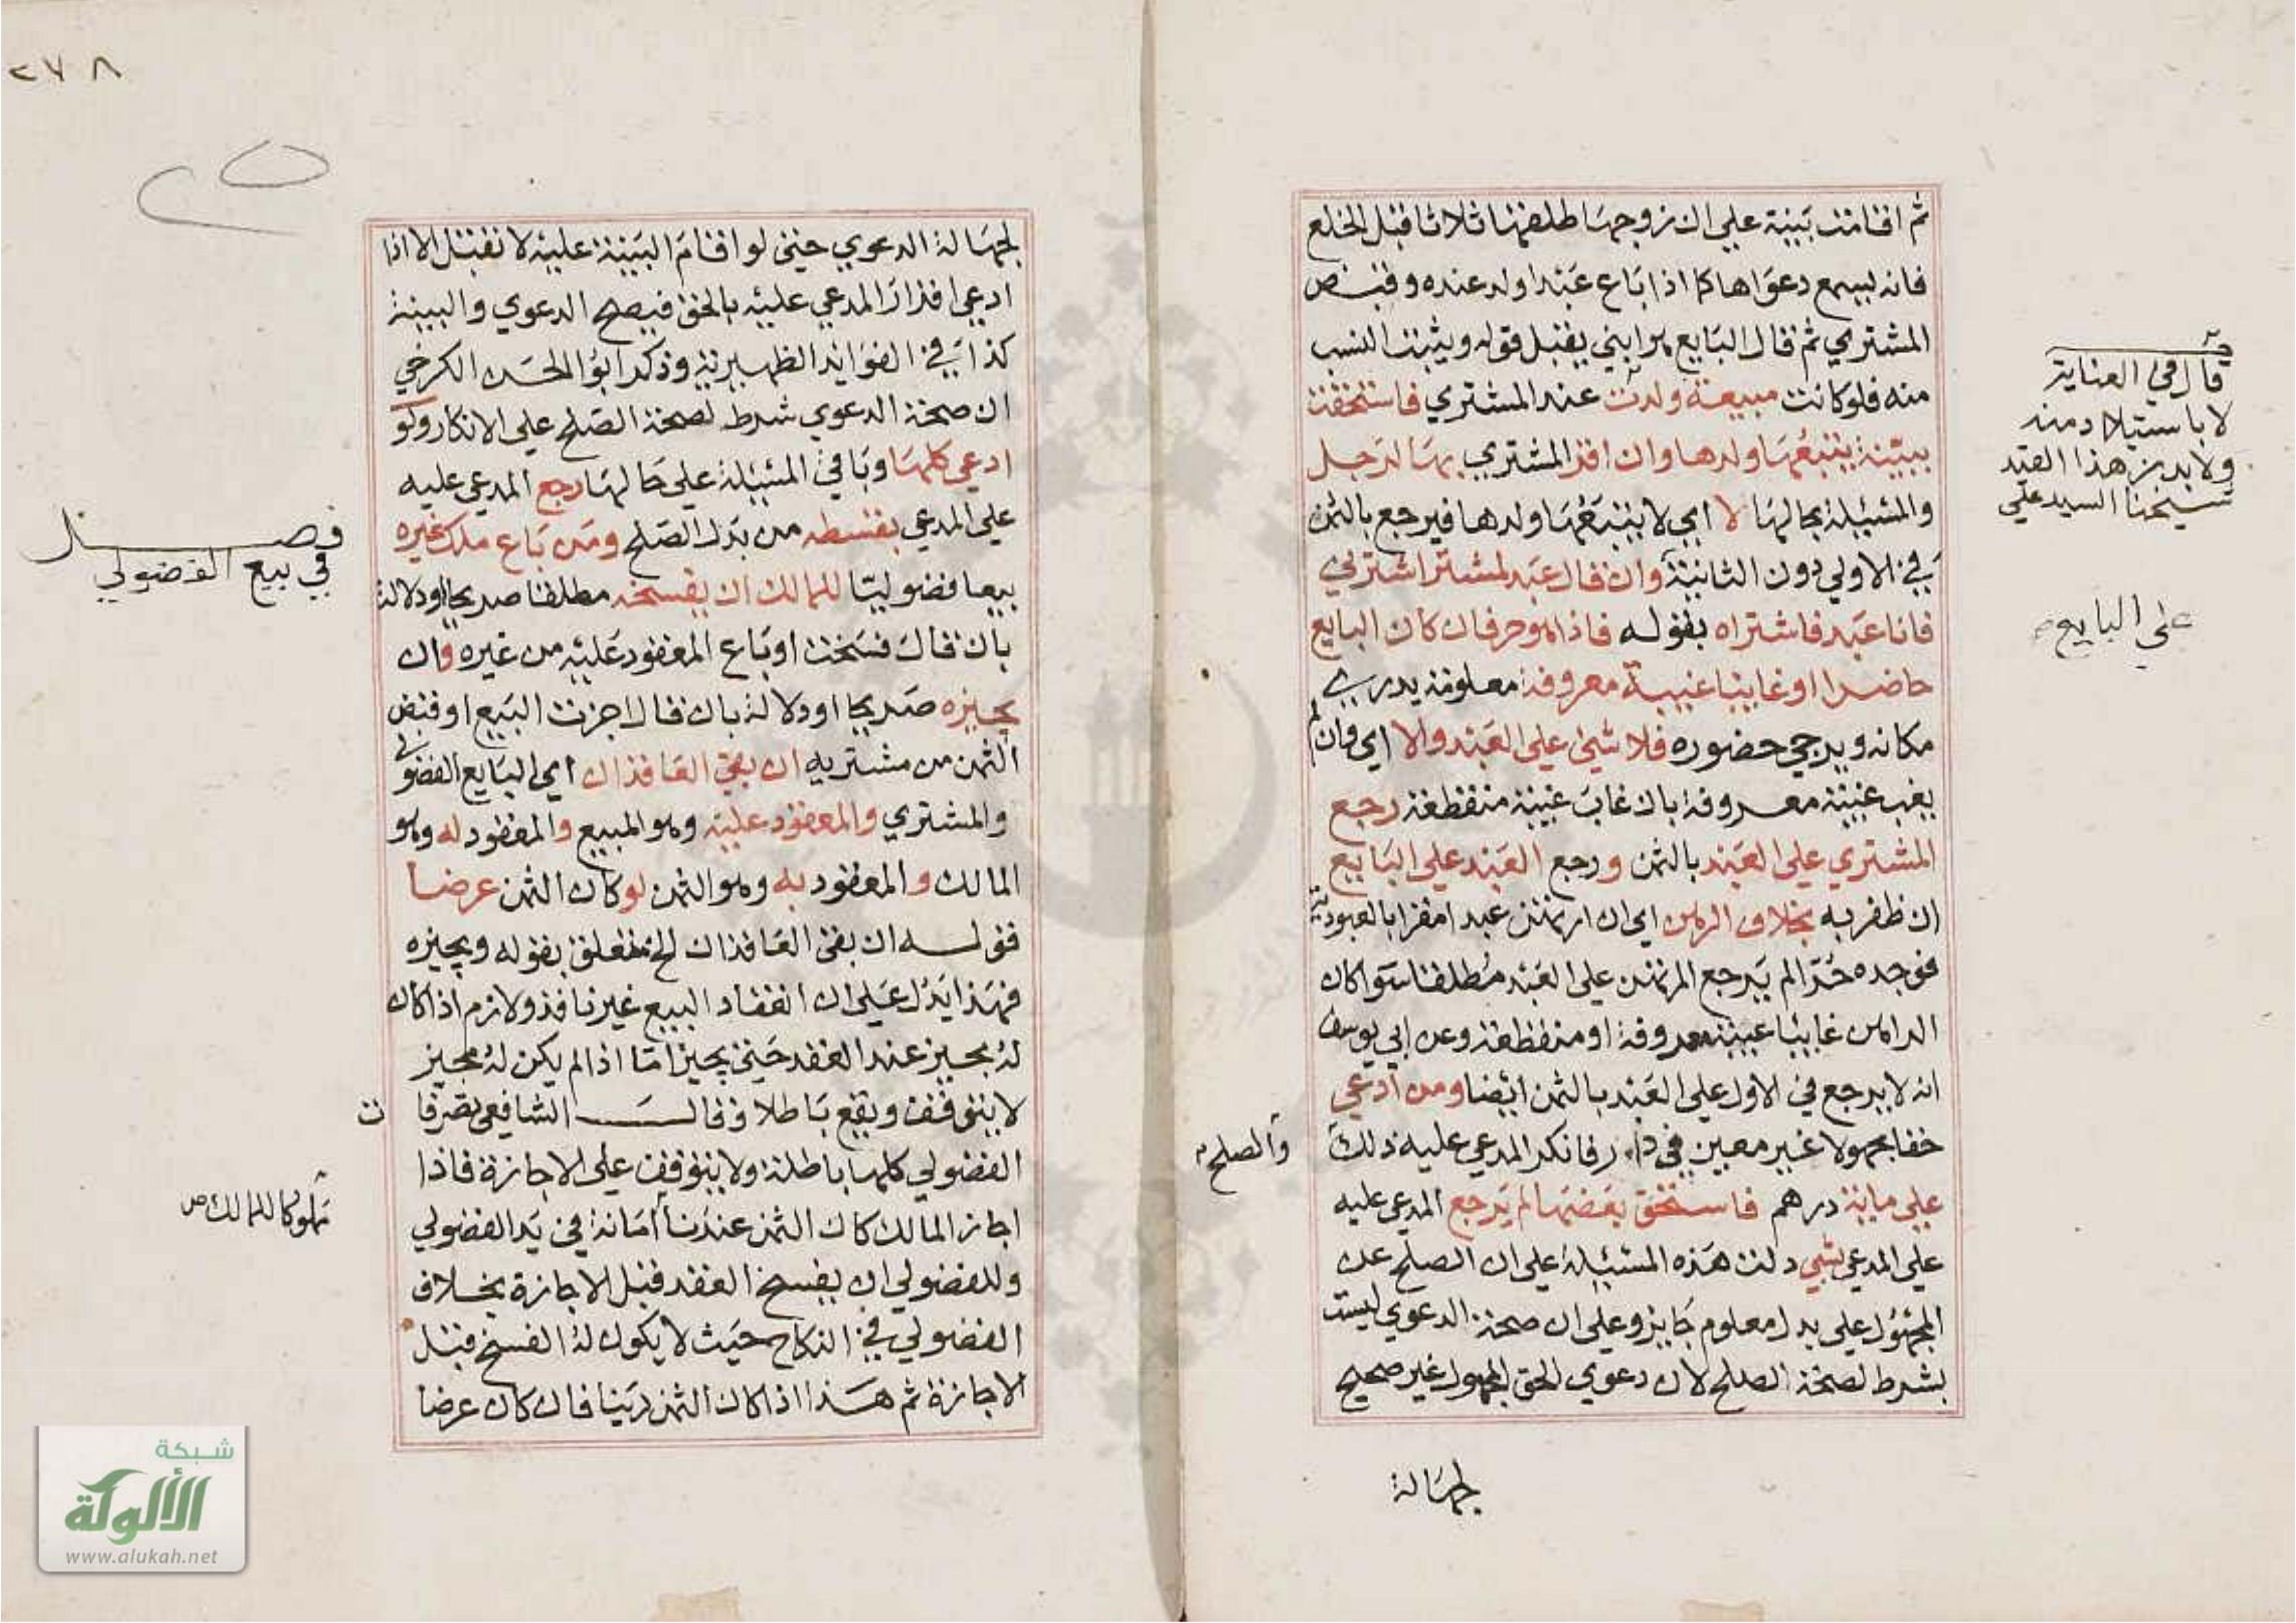 ثم اقامت بينة علي ان زوجها طلقها ثلاثا قبل الخلع
فانه يسمع دعواها كما اذا باع عبدا ولد عنده وقبض
المشتري ثم قال البايع هو ابني يقبل قوله ويثبت النسب
منه فلو كانت مبيعة ولدت عند المشتري فاستحقت
ببينة يتبعها ولدها وان اقر المشتري بها لرجل
والمسئلة بحالها لا اي لا يتبعها ولدها فيرجع بالثمن
في الاولي دون الثانية وان قال عبد لمشتر اشترني
فانا عبد فاشتراه بقوله فاذا هو حر فان كان البايع
حاضرا او غايبا غيبة معروفة معلومة يدري
مكانه ويرجي حضوره فلا شيء علي العبد والا اي وان لم
يغب غيبة معروفة بان غاب غيبة منقطعة رجع
المشتري علي العبد بالثمن ورجع العبد علي البايع
ان ظفر به بخلاف الرهن اي ان ارتهن عبدا مقرا بالعبودية
فوجده حرا لم يرجع المرتهن علي العبد مطلقا سوا كان
الراهن غايبا غيبة معروفة او منقطعة وعن ابي يوسف
انه لا يرجع في الاول علي العبد بالثمن ايضا ومن ادعي
حقا مجهولا غير معين في دار فانكر المدعي عليه ذلك
علي ماية درهم فاستحق بعضها لم يرجع المدعي عليه
علي المدعي بشي دلت هذه المسئلة علي ان الصلح عن
المجهول علي بدل معلوم جايز وعلي ان صحة الدعوي ليست
بشرط لصحة الصلح لان دعوي الحق المجهول غير صحيح
لجهالة
قال في العناية
لا باستيلاد منه
ولا بد من هذا القيد
شيخنا السيد علي
علي البايع
والصلح
٢٧٨
لجهالة الدعوي حتي لو اقام البينة عليه لا تقبل الا اذا
ادعي اقرار المدعي عليه بالحق فيصح الدعوي والبينة
كذا في الفوايد الظهيرية وذكر ابو الحسن الكرخي
ان صحة الدعوي شرط لصحة الصلح علي الانكار ولو
ادعي كلها وباقي المسئلة علي حالها رجع المدعي عليه
علي المدعي بقسطه من بدل الصلح ومن باع ملك غيره
بيعا فضوليا للمالك ان يفسخه مطلقا صريحا او دلالة
بان قال فسخت او باع المعقود عليه من غيره وان
يجيزه صريحا او دلالة بان قال اجزت البيع او قبض
الثمن من مشتريه ان بقي العاقدان اي البايع الفضولي
والمشتري والمعقود عليه وهو المبيع والمعقود له وهو
المالك والمعقود به وهو الثمن لو كان الثمن عرضا
فقوله ان بقي العاقدان الخ متعلق بقوله ويجيزه
فهذا يدل علي ان انعقاد البيع غير نافذ ولازم اذا كان
له مجيز عند العقد حتي يجيز اما اذا لم يكن له مجيز
لا يتوقف ويقع باطلا وقال الشافعي تصرفا
ت
الفضولي كلها باطلة ولا يتوقف علي الاجازة فاذا
اجاز المالك كان الثمن عندنا امانة في يد الفضولي
وللفضولي ان يفسخ العقد قبل الاجازة بخلاف
الفضولي في النكاح حيث لا يكون له الفسخ قبل
الاجازة ثم هذا اذا كان الثمن دينا فان كان عرضا
فصل
في بيع الفضولي
مملوكا للمالك
شبكة
الألوكة
www.alukah.net